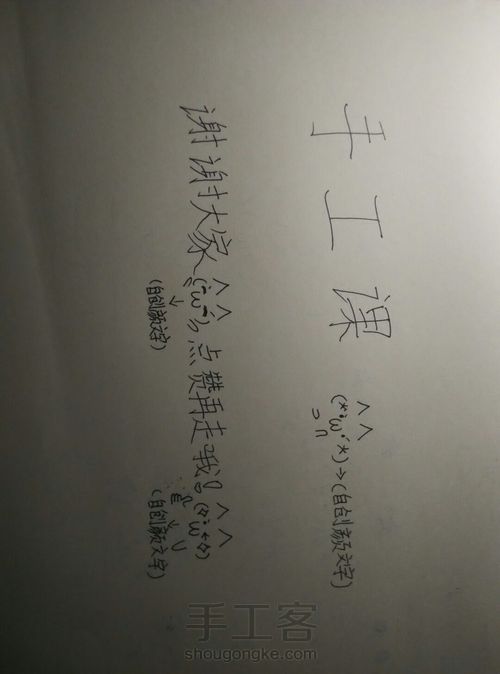 手工课
(*・ω・*)→(自创颜文字)
谢谢大家(・ω・),点赞再走哦!(◇・ω・◇)
(自创颜文字)
(自创颜文字)
手工客
shougongke.com